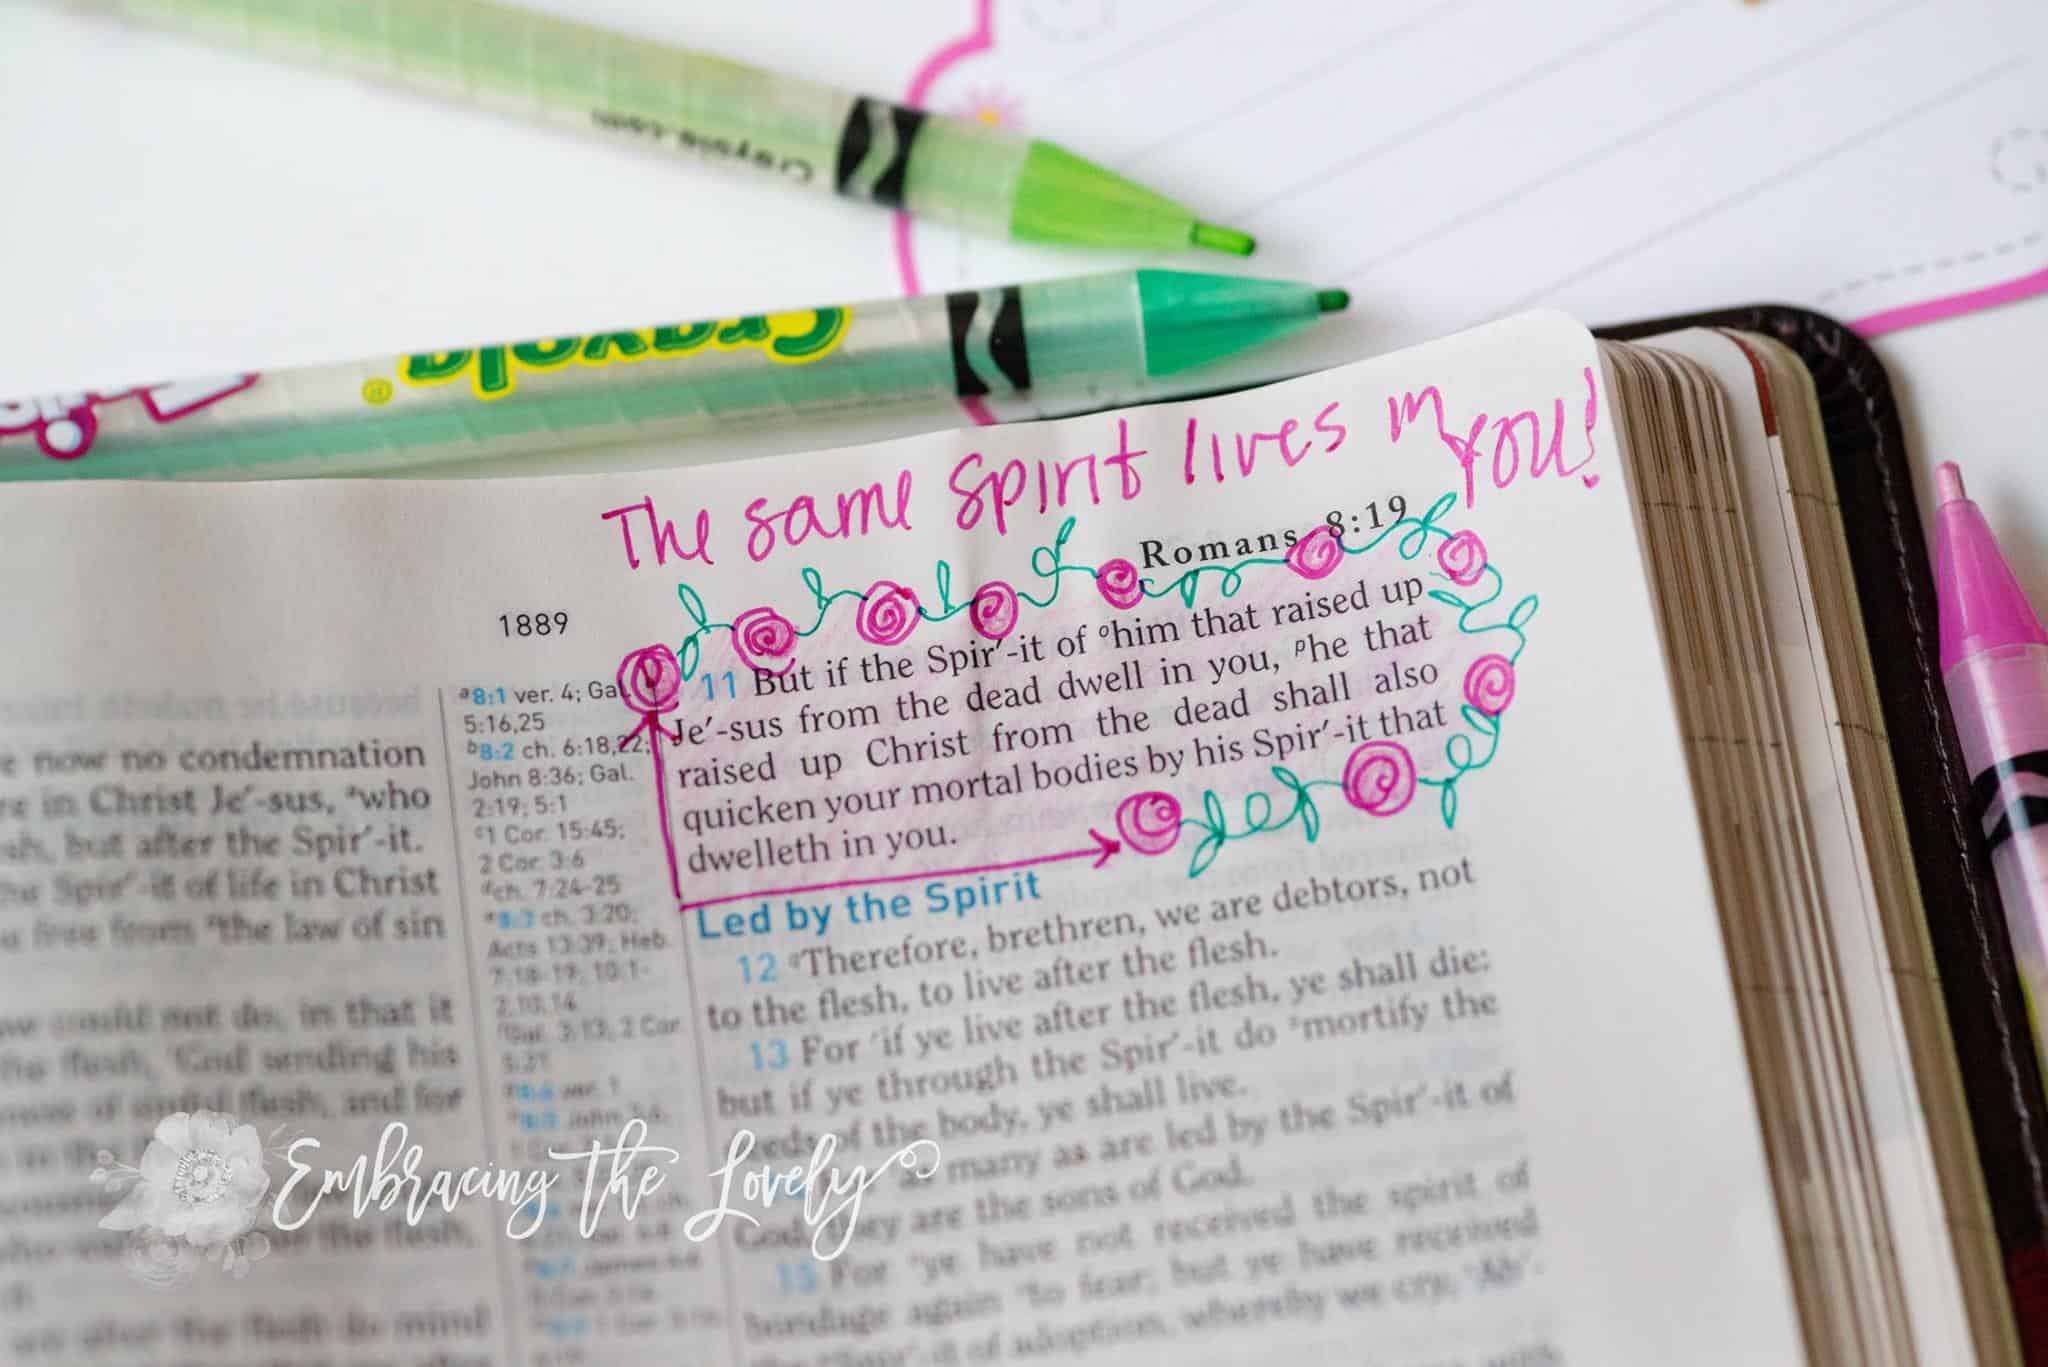 Crayola.com
Crayola®
The same spirit lives in YOU!
Romans 8:19
1889
now no condemnation
in Christ Je′-sus, ᵃwho
but after the Spir′-it.
Spir′-it of life in Christ
free from ᵉthe law of sin
could not do, in that it
the flesh, ᶠGod sending his
of sinful flesh, and for
the flesh,
the flesh do mind
ᵃ8:1 ver. 4; Gal.
5:16,25
ᵇ8:2 ch. 6:18,22;
John 8:36; Gal.
2:19; 5:1
ᶜ1 Cor. 15:45;
2 Cor. 3:6
ᵈch. 7:24-25
ᵉ8:3 ch. 3:20;
Acts 13:39; Heb.
7:18-19; 10:1-
2,10,14
ᶠGal. 3:13; 2 Cor.
5:21
ver. 1
John 3:6;
11 But if the Spir′-it of ᵒhim that raised up
Je′-sus from the dead dwell in you, ᵖhe that
raised up Christ from the dead shall also
quicken your mortal bodies by his Spir′-it that
dwelleth in you.
Led by the Spirit
12 ᵍTherefore, brethren, we are debtors, not
to the flesh, to live after the flesh.
13 For ʳif ye live after the flesh, ye shall die:
but if ye through the Spir′-it do ˢmortify the
deeds of the body, ye shall live.
as many as are led by the Spir′-it of
God, they are the sons of God.
15 For ᵘye have not received the spirit of
bondage again ᵛto fear; but ye have received
the Spir′-it of adoption, whereby we cry, Ab′-
Embracing The Lovely